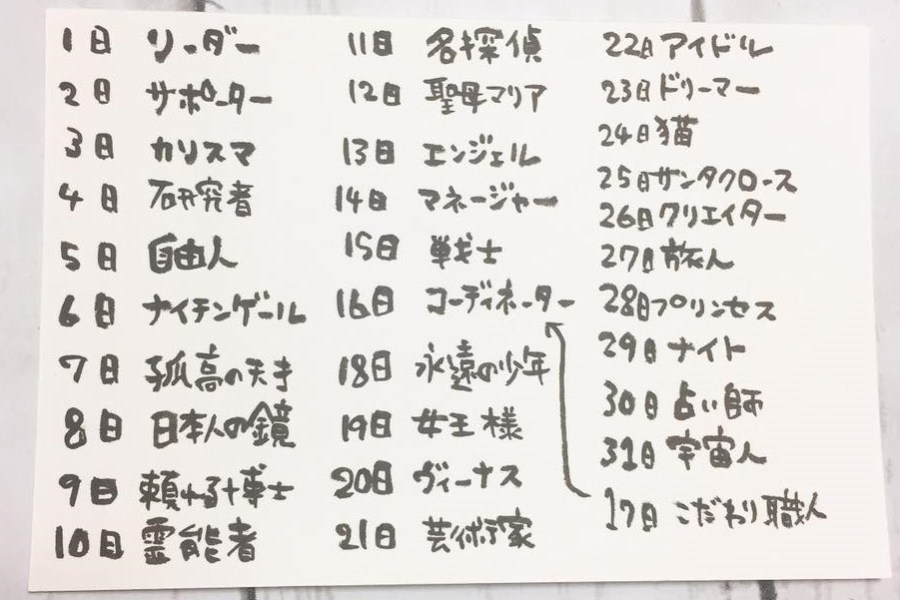 1日 リーダー
2日 サポーター
3日 カリスマ
4日 研究者
5日 自由人
6日 ナイチンゲール
7日 孤高の天才
8日 日本人の鏡
9日 頼れる博士
10日 霊能者
11日 名探偵
12日 聖母マリア
13日 エンジェル
14日 マネージャー
15日 戦士
16日 コーディネーター
18日 永遠の少年
19日 女王様
20日 ヴィーナス
21日 芸術家
22日 アイドル
23日 ドリーマー
24日 猫
25日 サンタクロース
26日 クリエイター
27日 旅人
28日 プリンセス
29日 ナイト
30日 占い師
31日 宇宙人
17日 こだわり職人